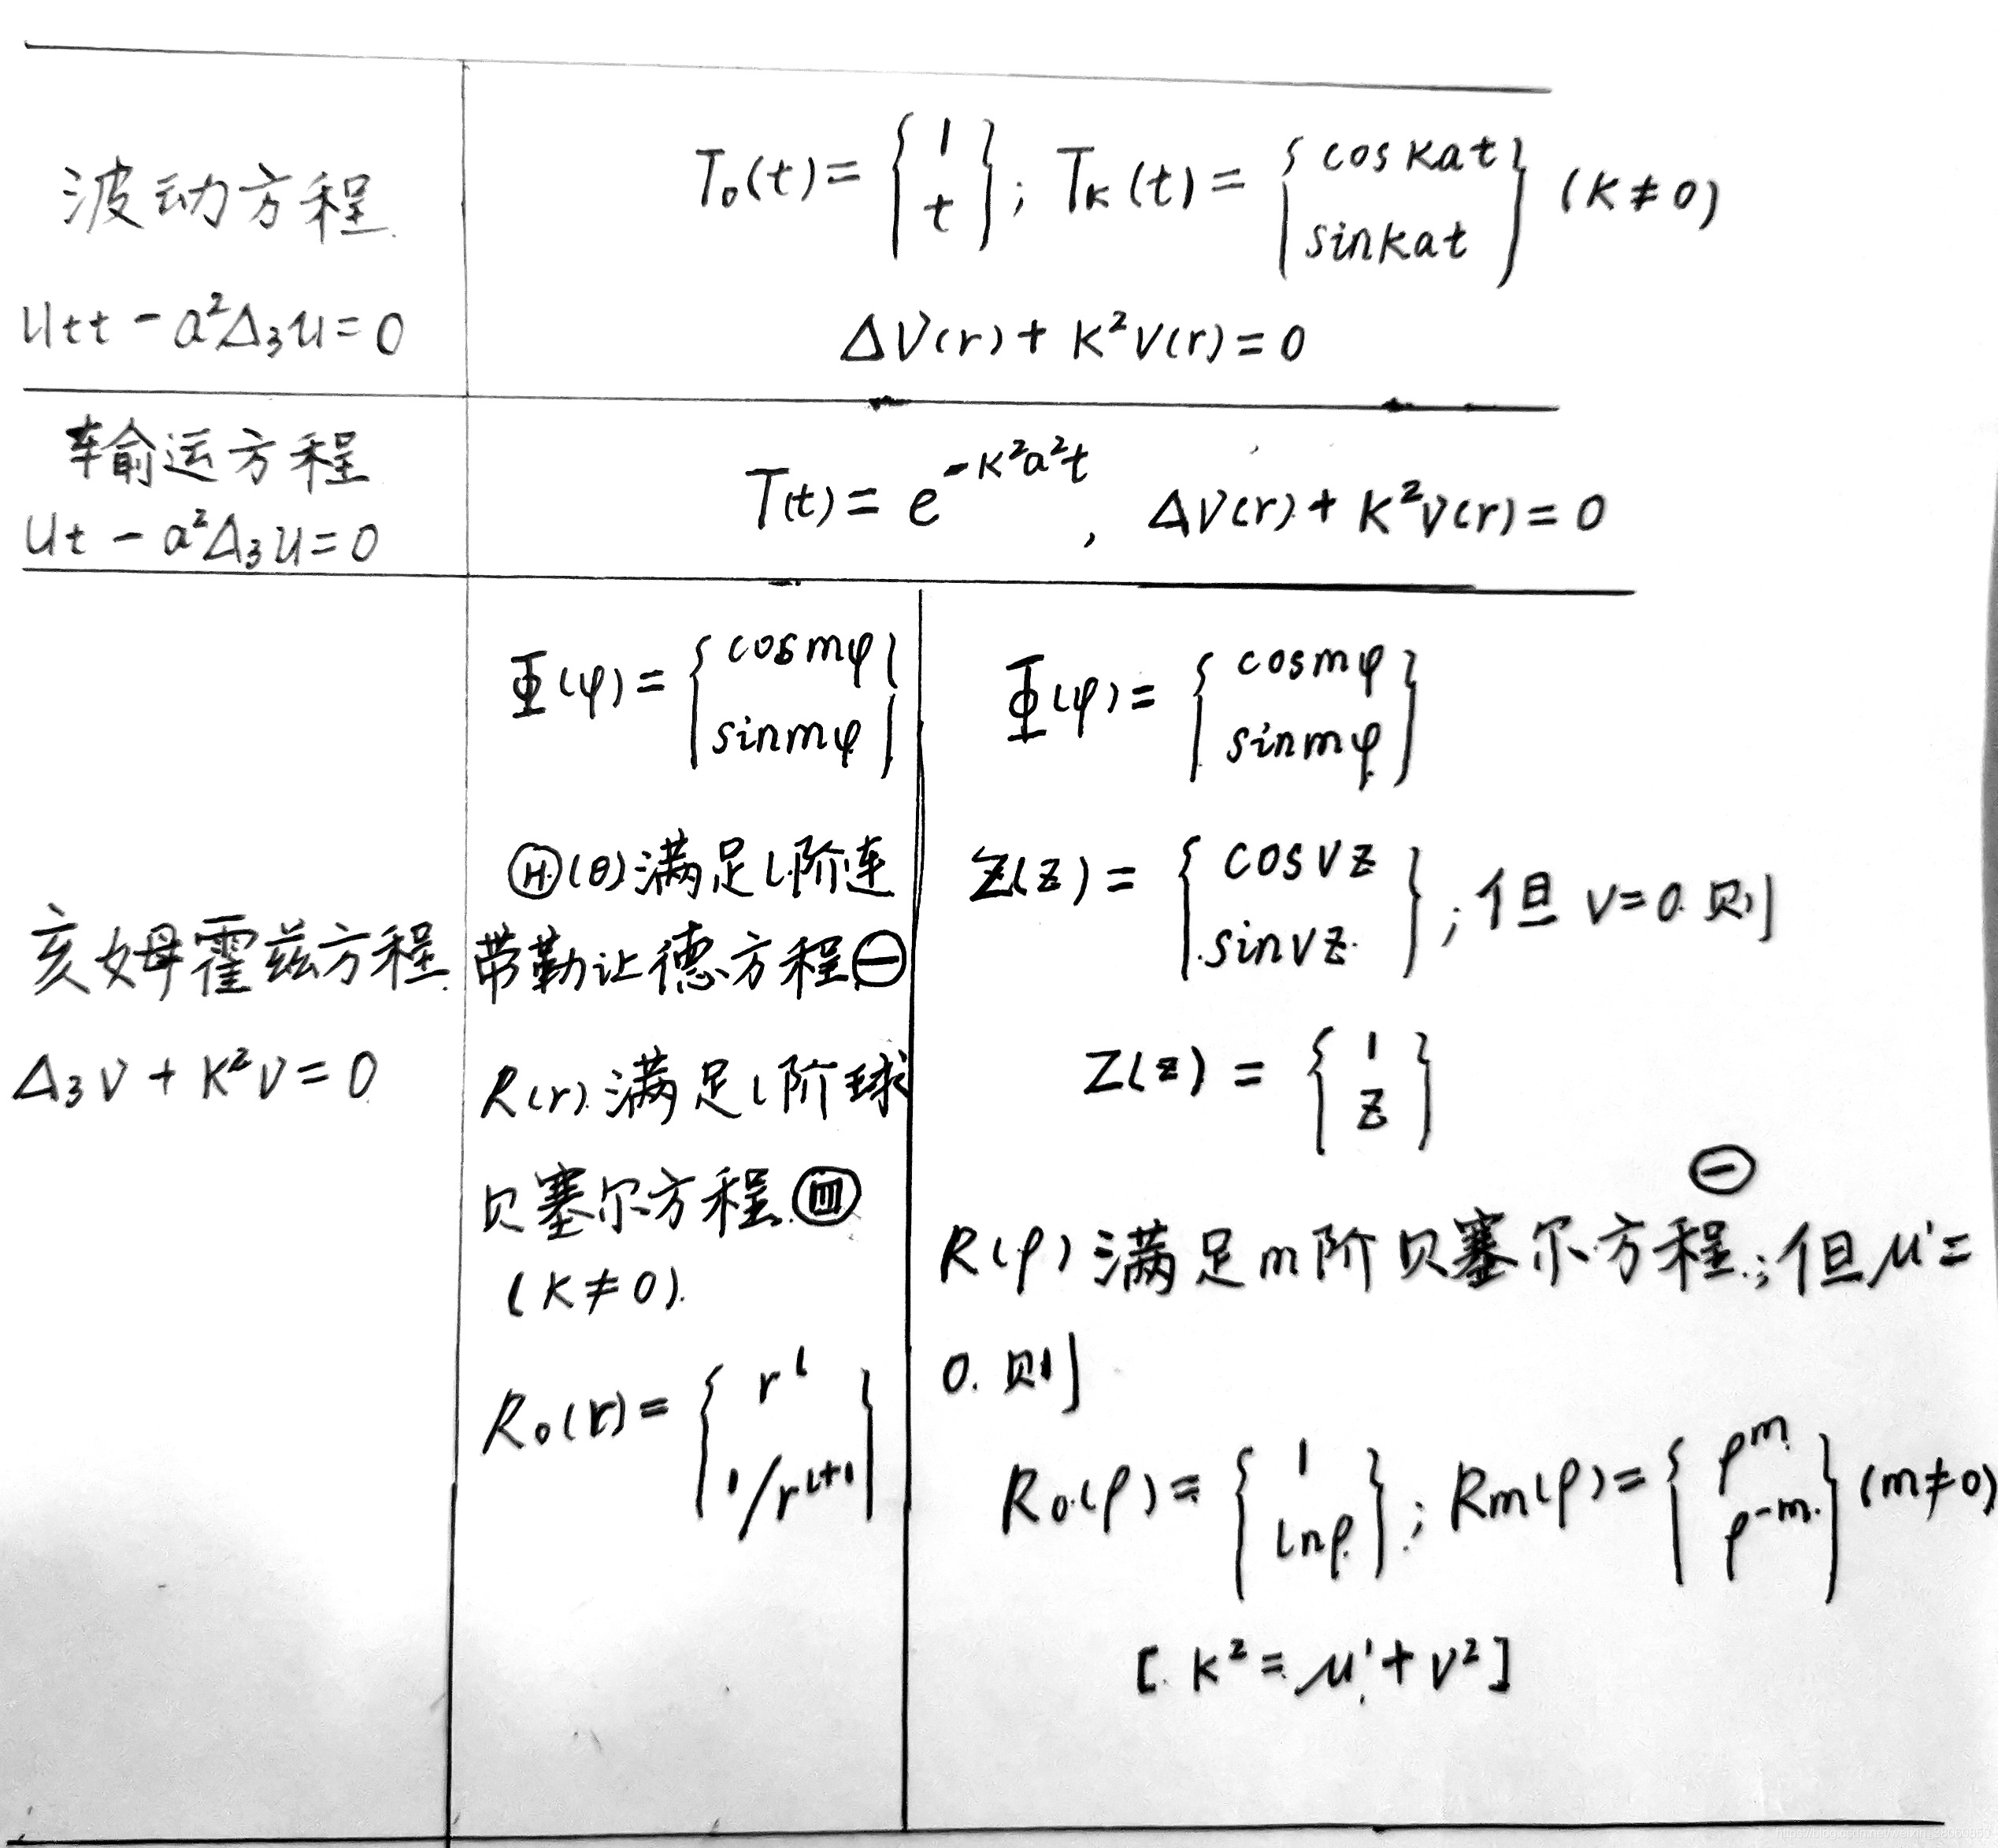 波动方程
Utt - a²Δ₃u = 0
T₀(t) = { 1
t } ; Tₖ(t) = { cos kat
sin kat } (k ≠ 0)
ΔV(r) + k²V(r) = 0
输运方程
Ut - a²Δ₃u = 0
T(t) = e^{-k²a²t} , ΔV(r) + k²V(r) = 0
亥姆霍兹方程
Δ₃V + k²V = 0
Φ(φ) = { cos mφ
sin mφ }
Ⓗ(θ)满足l阶连
带勒让德方程㊀
R(r)满足l阶球
贝塞尔方程㊃
(k ≠ 0)
R₀(r) = { r^l
1/r^{l+1} }
Φ(φ) = { cos mφ
sin mφ }
Z(z) = { cos νz
sin νz } ; 但 ν=0 则
Z(z) = { 1
z }
㊀
R(ρ) 满足m阶贝塞尔方程; 但 μ' =
0. 则
R₀(ρ) = { 1
lnρ } ; Rm(ρ) = { ρ^m
ρ^{-m} } (m ≠ 0)
[k² = μ' + ν²]